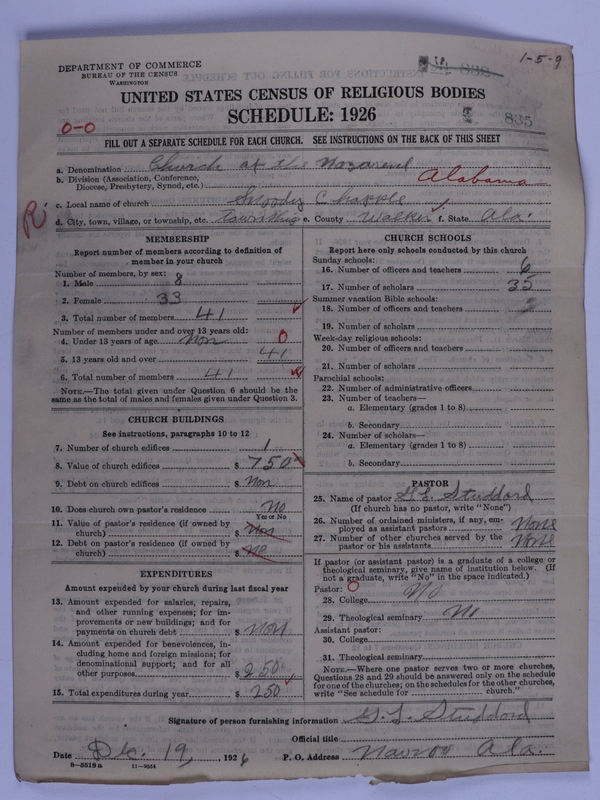 DEPARTMENT OF COMMERCE
BUREAU OF THE CENSUS
WASHINGTON
1-5-9
UNITED STATES CENSUS OF RELIGIOUS BODIES
SCHEDULE: 1926
835
0-0
FILL OUT A SEPARATE SCHEDULE FOR EACH CHURCH. SEE INSTRUCTIONS ON THE BACK OF THIS SHEET
a. Denomination Church of the Nazarene
b. Division (Association, Conference, Diocese, Presbytery, Synod, etc.) Alabama
c. Local name of church Moody Chapple
d. City, town, village, or township, etc. township e. County Walker f. State Ala.
R
MEMBERSHIP
Report number of members according to definition of
member in your church
Number of members, by sex:
1. Male 8
2. Female 33
3. Total number of members 41
Number of members under and over 13 years old:
4. Under 13 years of age Non 0
5. 13 years old and over 41
6. Total number of members 41
NOTE.—The total given under Question 6 should be the
same as the total of males and females given under Question 3.
CHURCH BUILDINGS
See instructions, paragraphs 10 to 12
7. Number of church edifices 1
8. Value of church edifices $ 750
9. Debt on church edifices $ Non
10. Does church own pastor's residence No
Yes or No
11. Value of pastor's residence (if owned by
church) $ Non
12. Debt on pastor's residence (if owned by
church) $ No
EXPENDITURES
Amount expended by your church during last fiscal year
13. Amount expended for salaries, repairs,
and other running expenses; for im-
provements or new buildings; and for
payments on church debt $ Non
14. Amount expended for benevolences, in-
cluding home and foreign missions; for
denominational support; and for all
other purposes $ 250
15. Total expenditures during year $ 250
CHURCH SCHOOLS
Report here only schools conducted by this church
Sunday schools:
16. Number of officers and teachers 6
17. Number of scholars 35
Summer vacation Bible schools:
18. Number of officers and teachers
19. Number of scholars
Week-day religious schools:
20. Number of officers and teachers
21. Number of scholars
Parochial schools:
22. Number of administrative officers
23. Number of teachers—
a. Elementary (grades 1 to 8)
b. Secondary
24. Number of scholars—
a. Elementary (grades 1 to 8)
b. Secondary
PASTOR
25. Name of pastor G. L. Studdord
(If church has no pastor, write "None")
26. Number of ordained ministers, if any, em-
ployed as assistant pastors None
27. Number of other churches served by the
pastor or his assistants None
If pastor (or assistant pastor) is a graduate of a college or
theological seminary, give name of institution below. (If
not a graduate, write "No" in the space indicated.)
Pastor: 0
28. College No
29. Theological seminary No
Assistant pastor:
30. College
31. Theological seminary
NOTE.—Where one pastor serves two or more churches,
Questions 28 and 29 should be answered only on the schedule
for one of the churches; on the schedules for the other churches,
write "See schedule for church."
Signature of person furnishing information G. L. Studdord
Official title
Date Dec. 19, 1926 P. O. Address Nauvoo Ala.
8-5518a 11-9554